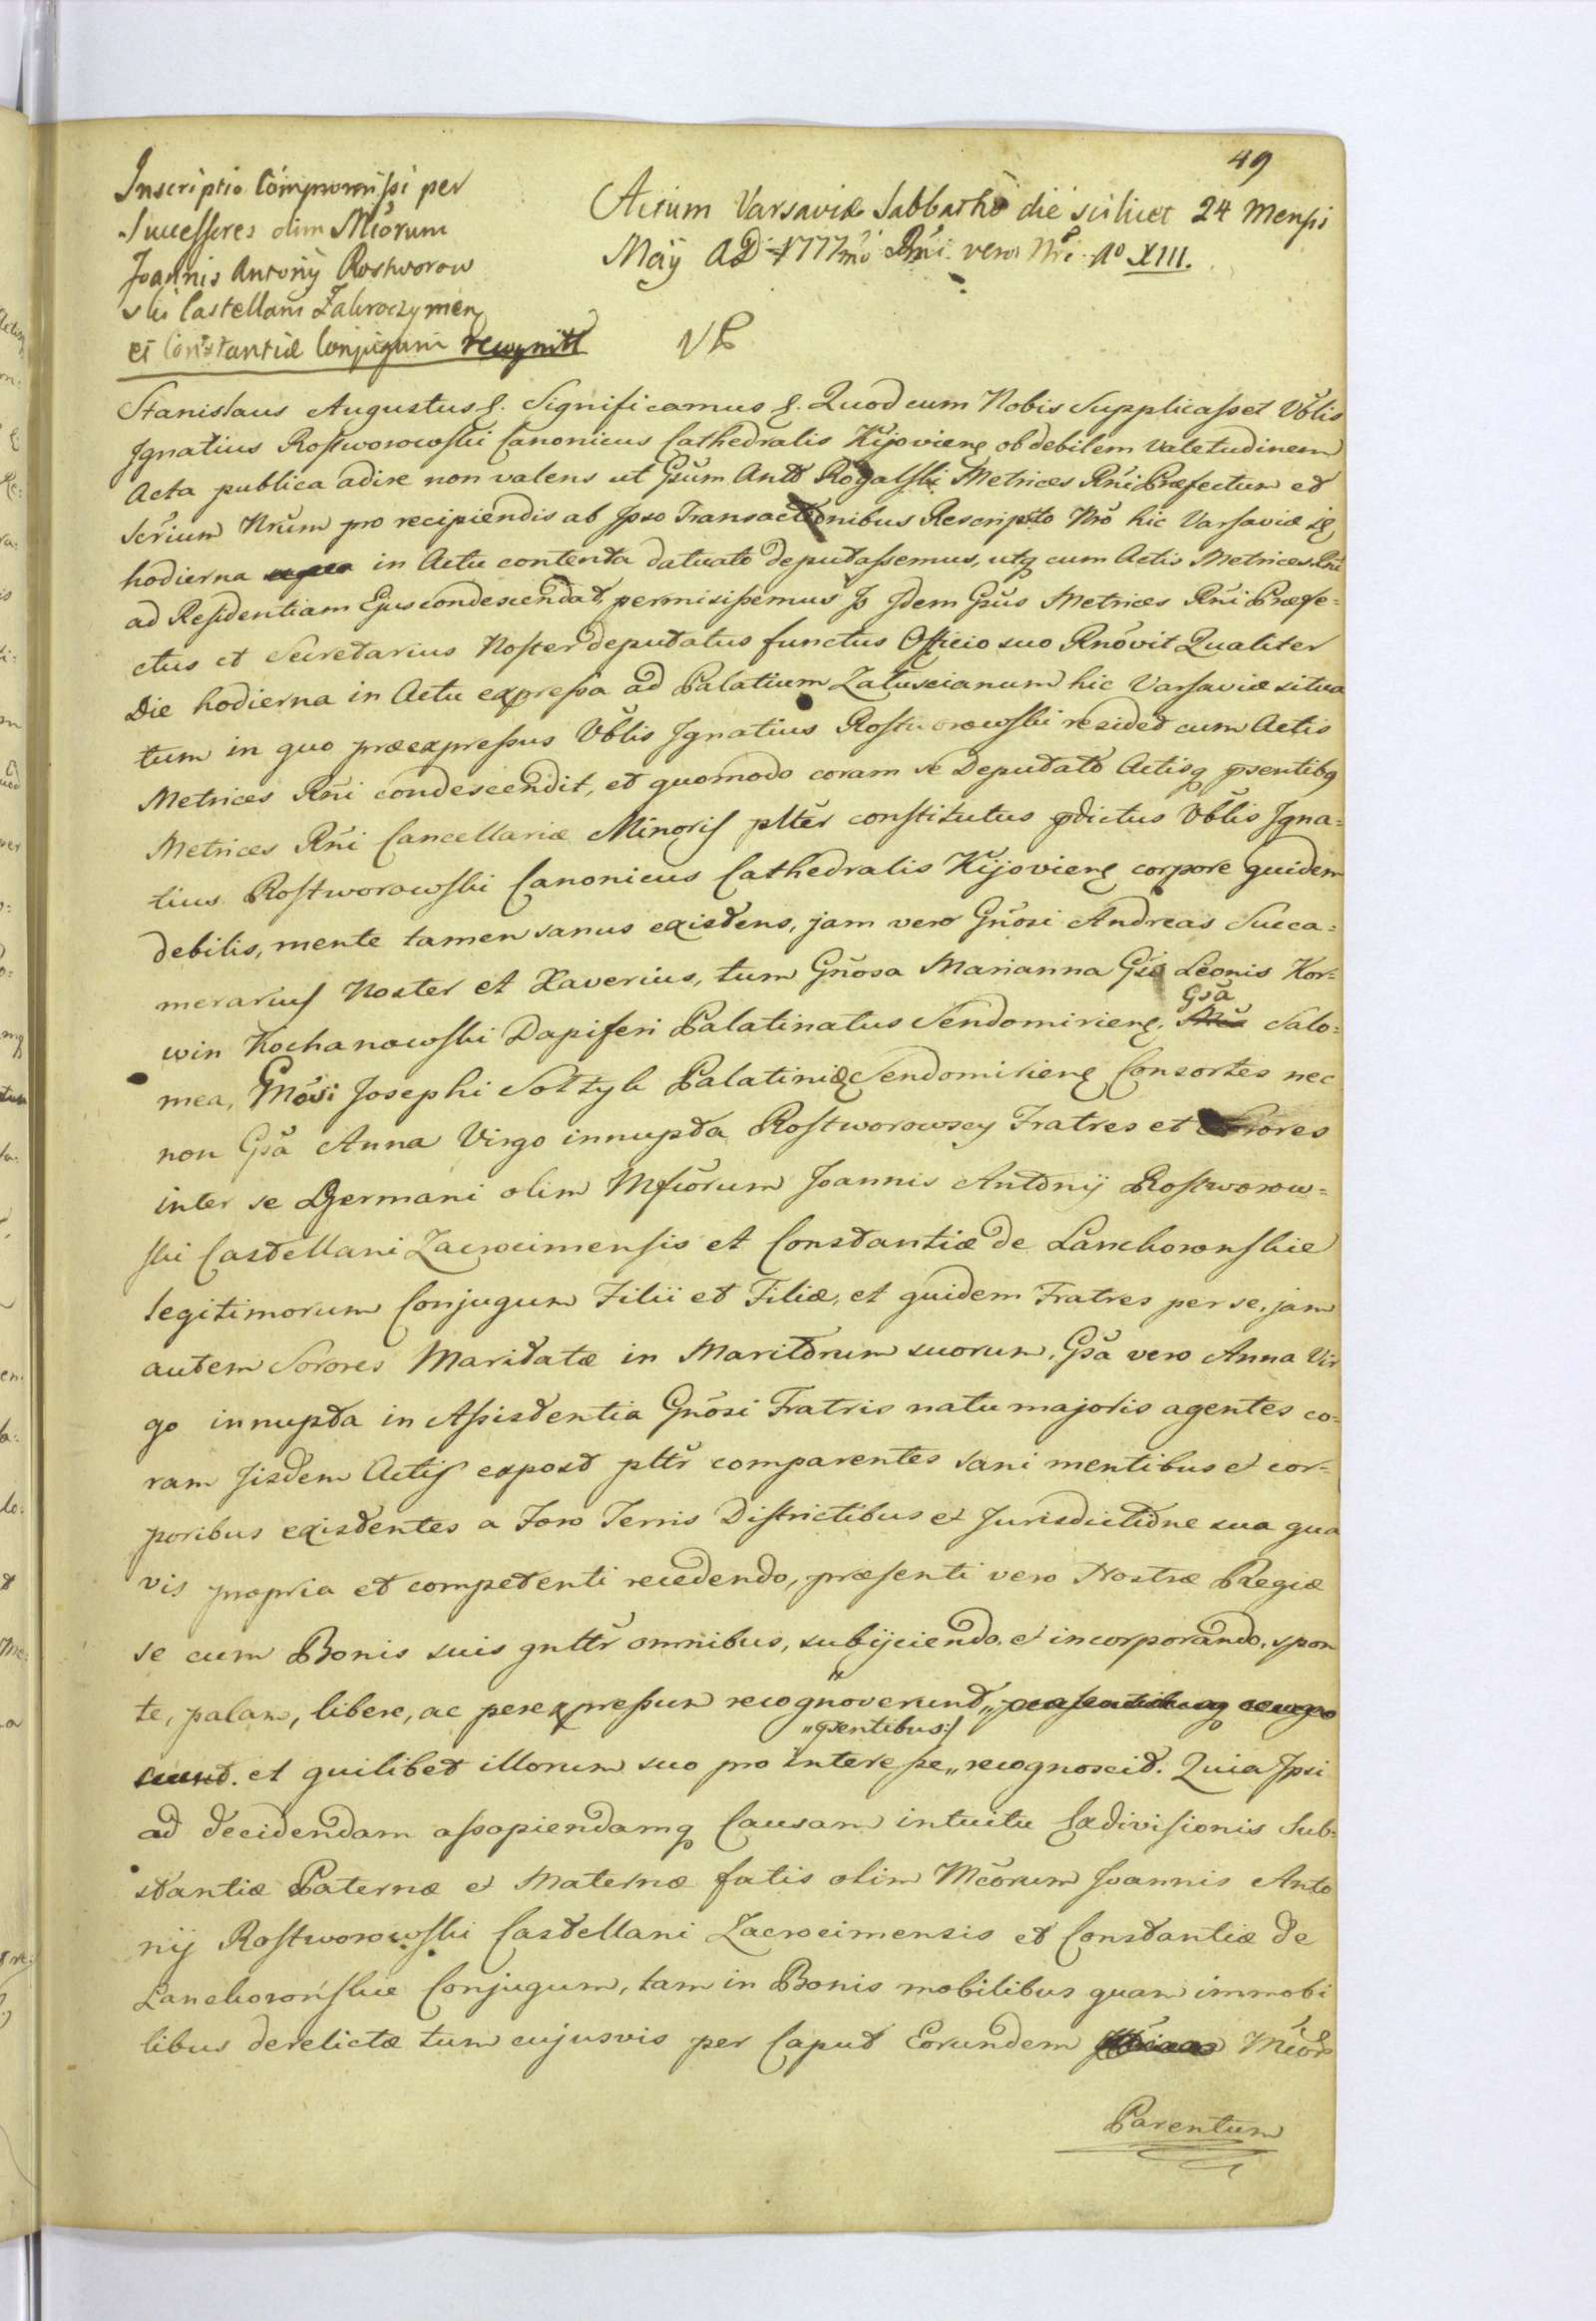 49
Inscriptio Compromissi per
Successores olim Mcorum
Joannis Antonij Rostworow
ski Castellani Zakroczymen
et Constantiæ Conjugum
Actum Varsaviæ Sabbatho die scilicet 24 Mensis
Maÿ AD 1777mo Rni vero Nri Ao XIII.
VP
Stanislaus Augustus &. Significamus &. Quod cum Nobis Supplicasset Vblis
Ignatius Rostworowski Canonicus Cathedralis Kijoviens ob debilem Valetudinem
Acta publica adire non valens ut Gsum Ant Rogalski Metrices Rni Præfectum et
Scrium Nrum pro recipiendis ab Ipso Transactionibus Rescripto Nro hic Varsaviæ
hodierna in Actu contenta datuato deputassemus, utq cum Actis Metrices Rni
ad Residentiam Ejus condescendat, permisissemus Idem Gsus Metrices Rni Præfe=
ctus et Secretarius Noster deputatus functus Officio suo Rnovit Qualiter
Die hodierna in Actu expressa ad Palatium Załuscianum hic Varsaviæ situa
tum in quo præexpressus Vblis Ignatius Rostworowski resided cum Actis
Metrices Rni condescendit, et quomodo coram se Deputato Actisq psentibq
Metrices Rni Cancellariæ Minoris plter constitutus pdictus Vblis Igna=
tius Rostworowski Canonicus Cathedralis Kijoviens corpore quidem
debilis, mente tamen sanus existens, jam vero Gnosi Andreas Succa=
merarius Noster et Xaverius, tum Gnosa Marianna Gsi Leonis Kor=
win Kochanowski Dapiferi Palatinatus Sendomiriens. Gsa Salo=
mea, Josephi Sołtyk Palatinid Sendomiriens Consortes nec
non Gsa Anna Virgo innupta Rostworowscy Fratres et Sorores
inter se Germani olim Joannis Antonij Rostworow=
ski Castellani Zacrocimensis et Constantiæ de Lanckoronskie
legitimorum Conjugum Filii et Filiæ, et quidem Fratres per se, jam
autem Sorores Maritatæ in Maritorum suorum, Gsa vero Anna Vir
go innupta in Assistentia Gnosi Fratris natu majoris agentes co=
ram Iisdem Actis expost plter comparentes sani mentibus et cor=
poribus existentes a Foro Terris Districtibus et Jurisdictione sua qua
vis propria et competenti recedendo, præsenti vero Nostræ Regiæ
se cum Bonis suis gnltr omnibus, subijciendo et incorporando, spon
te, palam, libere, ac per expressum recognoverunt
"psentibus:/
et quilibet illorum suo pro interesse " recognoscit. Quia Ipsi
ad decidendam assopiendamq Causam intuitu Exdivisionis Sub=
stantiæ Paternæ et Maternæ fatis olim Mcorum Joannis Anto
nij Rostworowski Castellani Zacrocimensis et Constantiæ de
Lanckorońskie Conjugum, tam in Bonis mobilibus quam immobi
libus derelictæ tum cujusvis per Caput Eorundem Mcor
Parentum